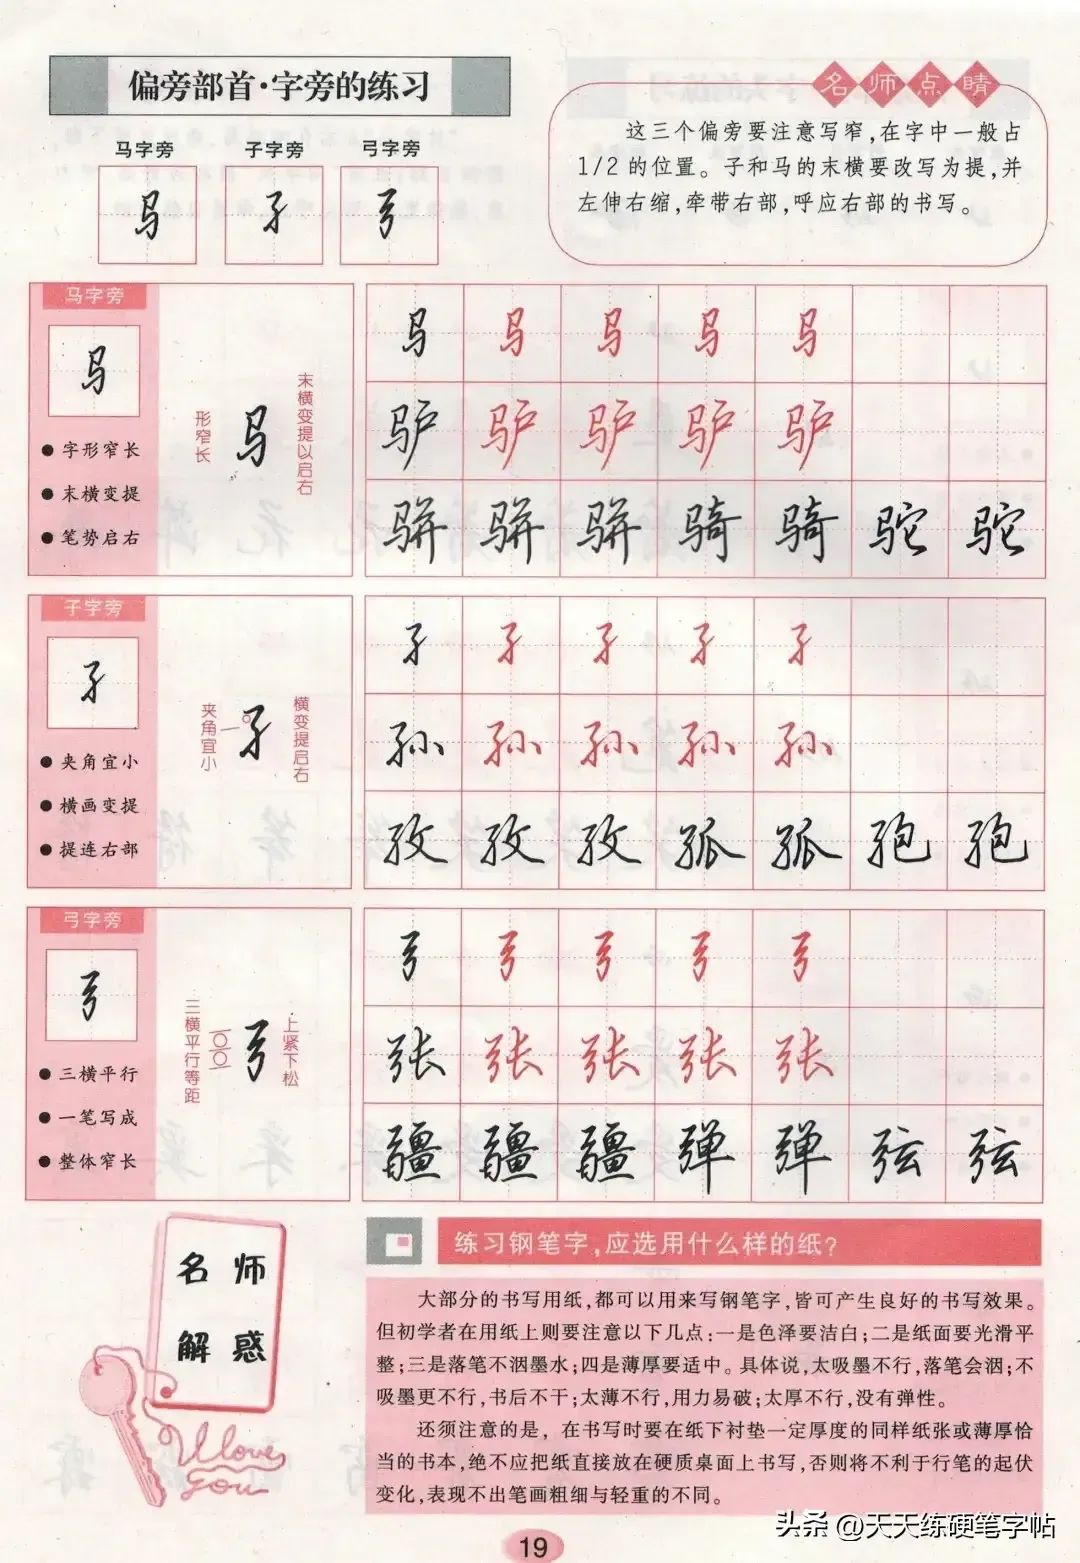 偏旁部首·字旁的练习
名师点睛
这三个偏旁要注意写窄,在字中一般占
1/2的位置。子和马的末横要改写为提,并
左伸右缩,牵带右部,呼应右部的书写。
马字旁 子字旁 弓字旁
马 子 弓
马字旁
马
● 字形窄长
● 末横变提
● 笔势启右
形窄长
马
末横变提以启右
马 马 马 马 马
驴 驴 驴 驴 驴
骈 骈 骈 骑 骑 驼 驼
子字旁
子
● 夹角宜小
● 横画变提
● 提连右部
夹角宜小
子
横变提启右
子 子 子 子 子
孙 孙 孙 孙 孙
孜 孜 孜 孤 孤 孢 孢
弓字旁
弓
● 三横平行
● 一笔写成
● 整体窄长
三横平行等距
弓
上紧下松
弓 弓 弓 弓 弓
张 张 张 张 张
疆 疆 疆 弹 弹 弦 弦
名师
解惑
I love
you
练习钢笔字,应选用什么样的纸?
大部分的书写用纸,都可以用来写钢笔字,皆可产生良好的书写效果。
但初学者在用纸上则要注意以下几点:一是色泽要洁白;二是纸面要光滑平
整;三是落笔不洇墨水;四是薄厚要适中。具体说,太吸墨不行,落笔会洇;不
吸墨更不行,书后不干;太薄不行,用力易破;太厚不行,没有弹性。
还须注意的是,在书写时要在纸下衬垫一定厚度的同样纸张或薄厚恰
当的书本,绝不应把纸直接放在硬质桌面上书写,否则将不利于行笔的起伏
变化,表现不出笔画粗细与轻重的不同。
19
头条 @天天练硬笔字帖